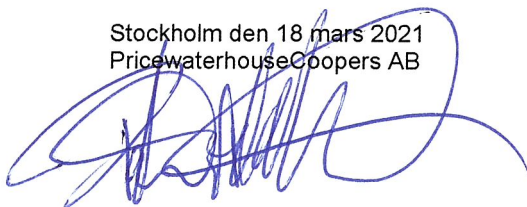 Stockholm den 18 mars 2021
PricewaterhouseCoopers AB